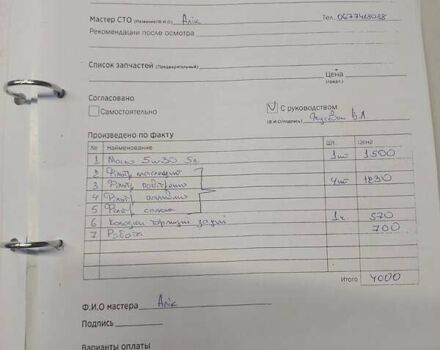 Мастер СТО (Название/Ф.И.О) Алік Тел. 0677413038
Рекомендации после осмотра
Список запчастей (Предварительный) Цена
Согласовано
Самостоятельно С руководством
В.А.
Произведено по факту
№ Наименование Шт. Цена
1 Масло 5w30 5л 1шт 1500
2 Фільтр масляний
3 Фільтр повітряний 4шт 1230
4 Фільтр
5 Фільтр салона
6 Колодки тормозні задні 1к. 570
7 Робота 700
Итого 4000
Ф.И.О мастера Алік
Подпись
Варианты оплаты